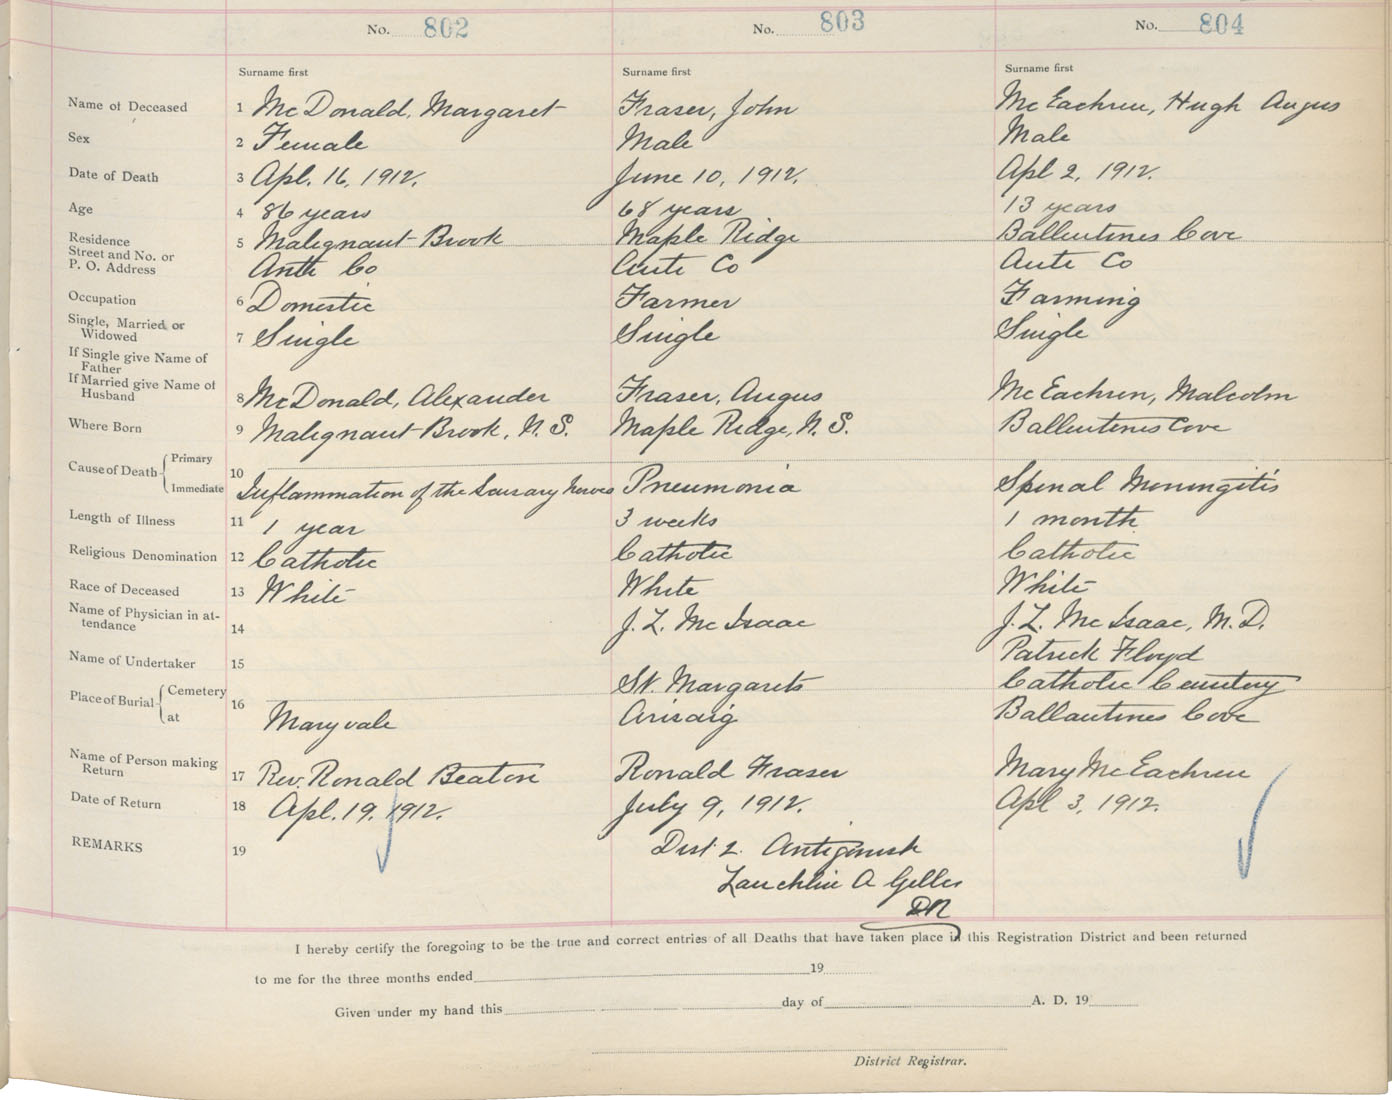 No. 802 No. 803 No. 804
Surname first Surname first Surname first
Name of Deceased 1 McDonald, Margaret Fraser, John McEachren, Hugh Angus
Sex 2 Female Male Male
Date of Death 3 Apl. 16, 1912. June 10, 1912. Apl 2, 1912.
Age 4 86 years 68 years 13 years
Residence 5 Malignant Brook Maple Ridge Ballentines Cove
Street and No. or
P. O. Address Ante Co Ante Co Ante Co
Occupation 6 Domestic Farmer Farming
Single, Married or
Widowed 7 Single Single Single
If Single give Name of
Father
If Married give Name of
Husband 8 McDonald, Alexander Fraser, Angus McEachren, Malcolm
Where Born 9 Malignant Brook, N. S. Maple Ridge, N. S. Ballentines Cove
Cause of Death Primary 10
Immediate Inflammation of the nerves Pneumonia Spinal Meningitis
Length of Illness 11 1 year 3 weeks 1 month
Religious Denomination 12 Catholic Catholic Catholic
Race of Deceased 13 White White White
Name of Physician in at-
tendance 14 J. L. McIsaac J. L. McIsaac, M. D.
Name of Undertaker 15 Patrick Floyd
Place of Burial Cemetery 16 St. Margarets Catholic Cemetery
at Maryvale Arisaig Ballantines Cove
Name of Person making
Return 17 Rev. Ronald Beaton Ronald Fraser Mary McEachren
Date of Return 18 Apl. 19, 1912. July 9, 1912. Apl 3, 1912.
REMARKS 19 Dist 2. Antigonish
Lauchlin A Gillis
DR
I hereby certify the foregoing to be the true and correct entries of all Deaths that have taken place in this Registration District and been returned
to me for the three months ended 19
Given under my hand this day of A. D. 19
District Registrar.